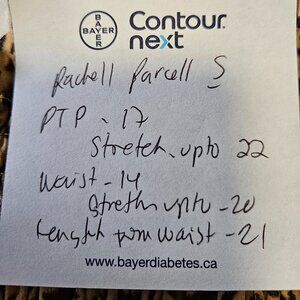 BAYER
BAYER
Contour
next
Rachell Parcell S
PTP - 17
Stretch upto 22
Waist - 14
Stretch upto - 20
Lenght from waist - 21
www.bayerdiabetes.ca